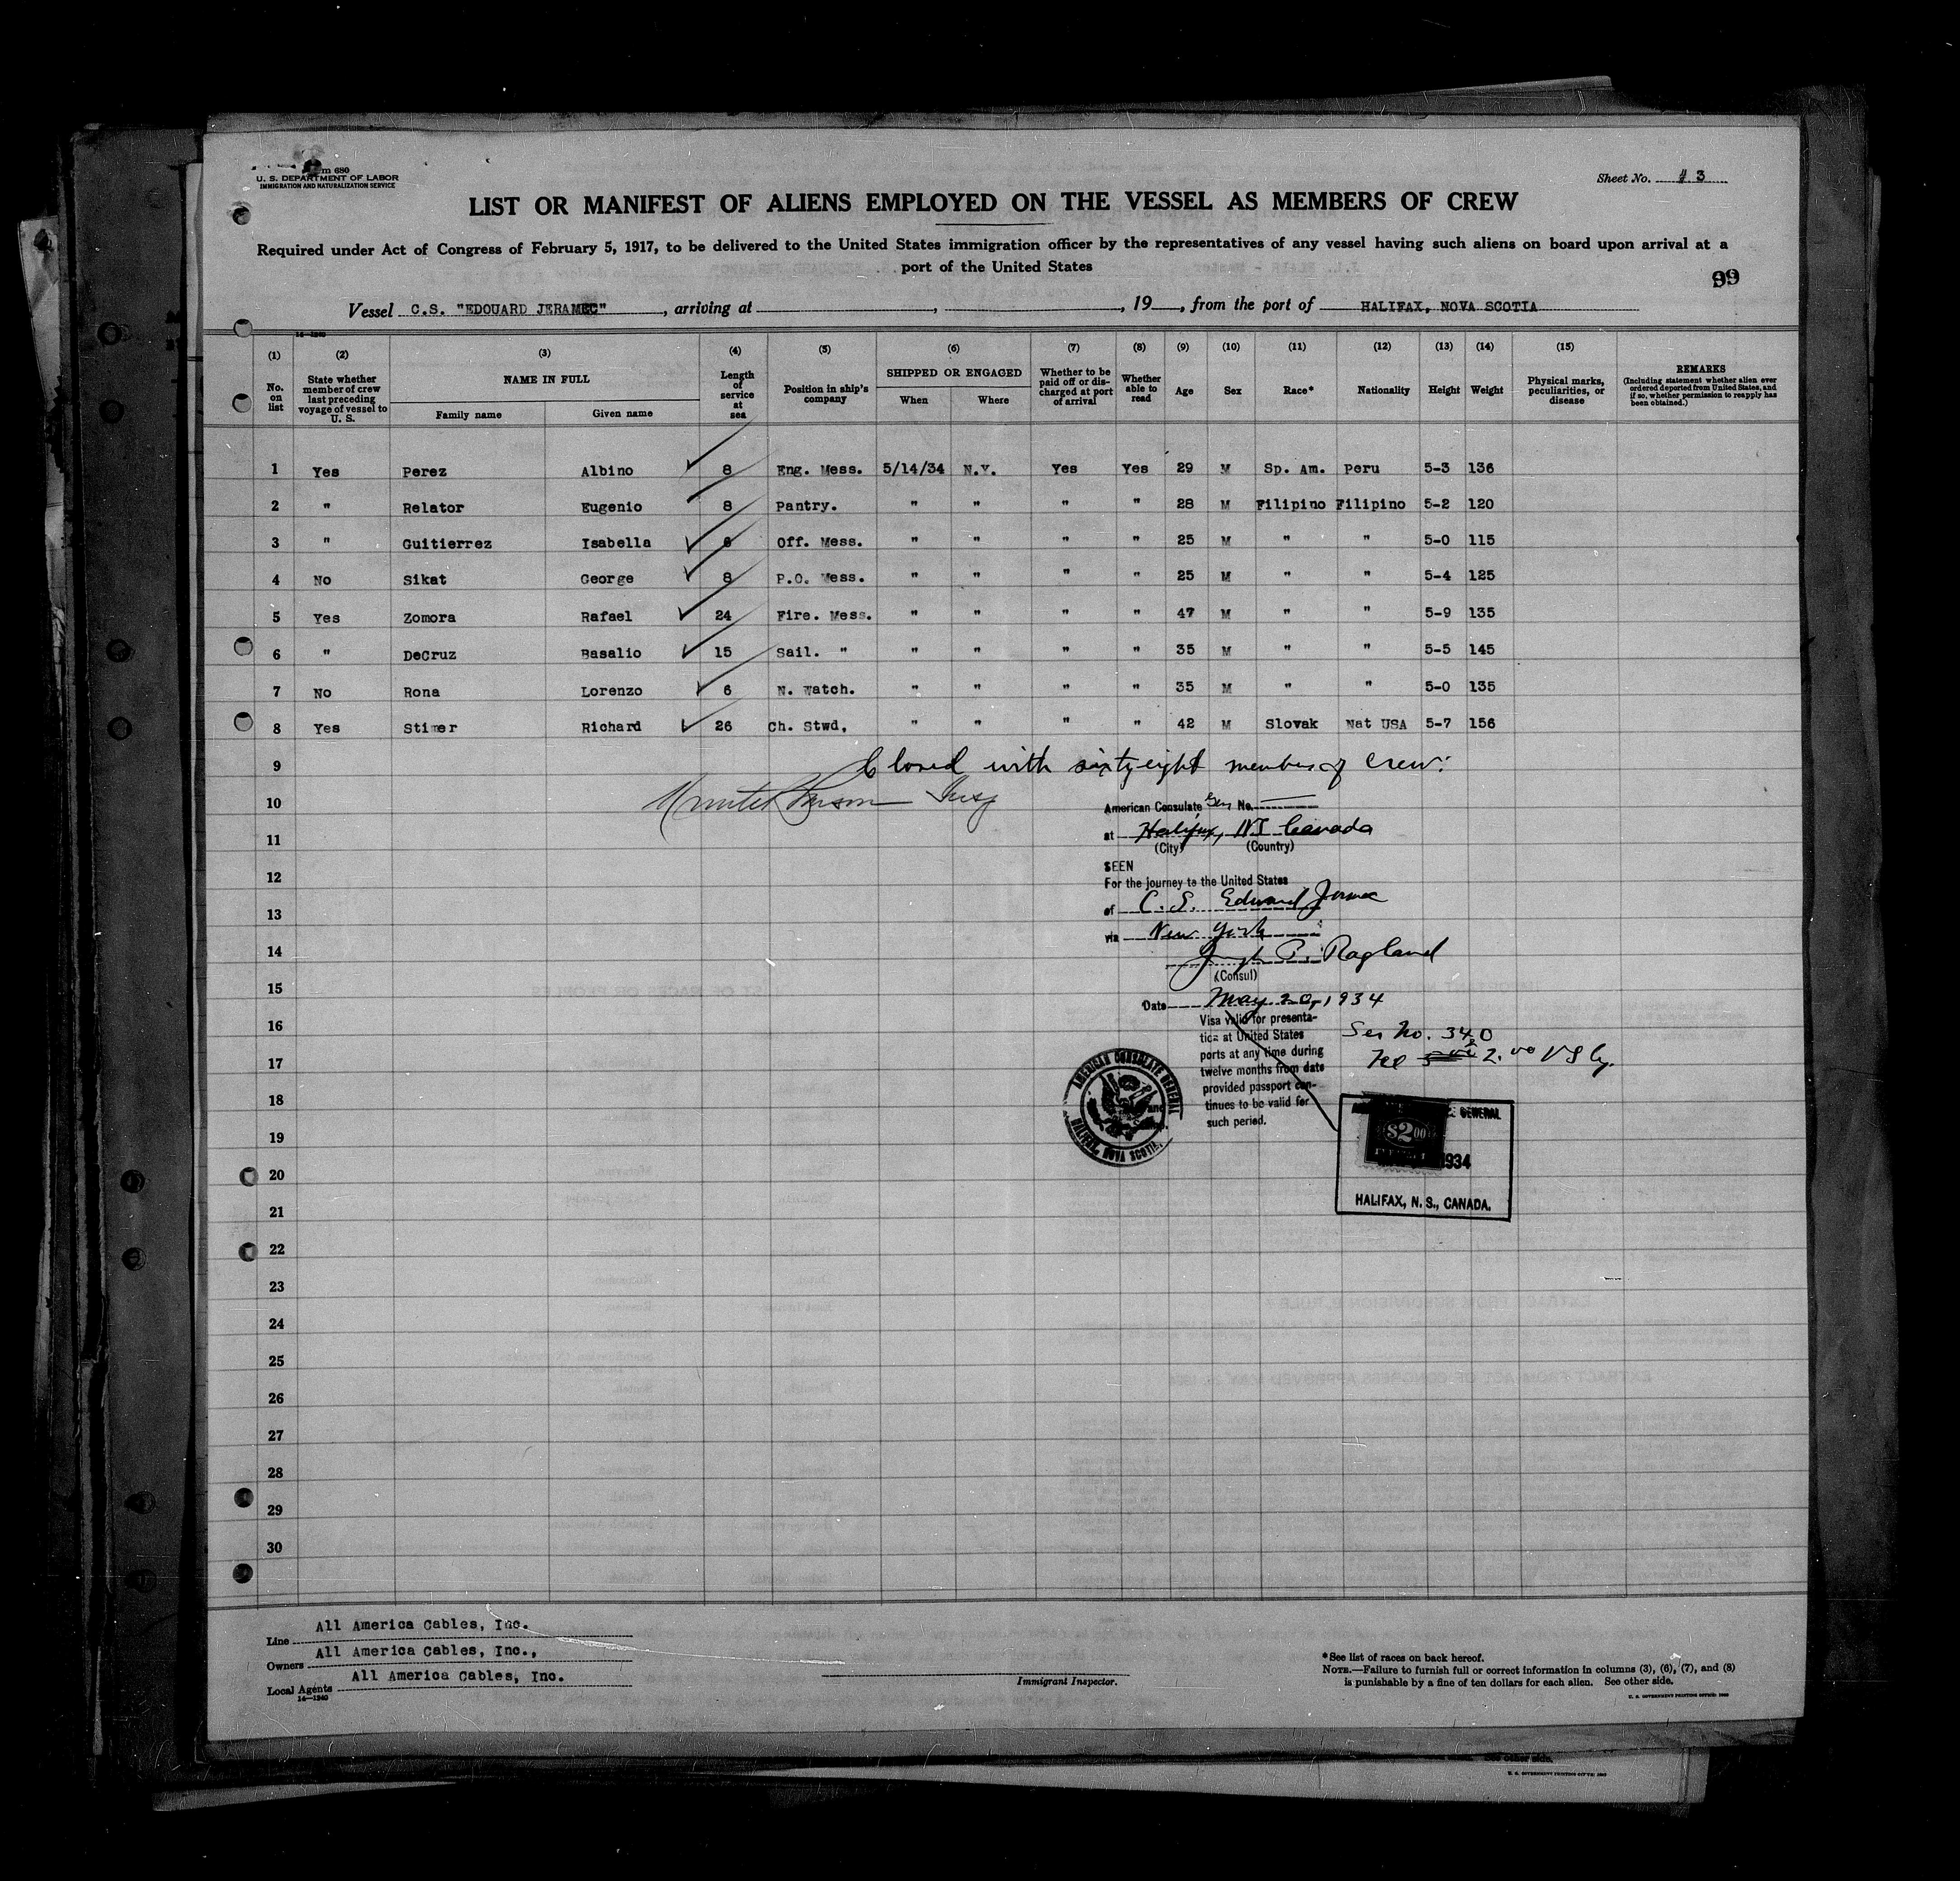 m 680
U. S. DEPARTMENT OF LABOR
IMMIGRATION AND NATURALIZATION SERVICE
Sheet No. 3
LIST OR MANIFEST OF ALIENS EMPLOYED ON THE VESSEL AS MEMBERS OF CREW
Required under Act of Congress of February 5, 1917, to be delivered to the United States immigration officer by the representatives of any vessel having such aliens on board upon arrival at a
port of the United States
99
Vessel C.S. "EDOUARD JERAMEC", arriving at , , 19 , from the port of HALIFAX, NOVA SCOTIA
14-1240
(1) (2) (3) (4) (5) (6) (7) (8) (9) (10) (11) (12) (13) (14) (15)
No. on list State whether member of crew last preceding voyage of vessel to U. S. NAME IN FULL Family name Given name Length of service at sea Position in ship's company SHIPPED OR ENGAGED When Where Whether to be paid off or discharged at port of arrival Whether able to read Age Sex Race* Nationality Height Weight Physical marks, peculiarities, or disease REMARKS (Including statement whether alien ever ordered deported from United States, and if so, whether permission to reapply has been obtained.)
1 Yes Perez Albino 8 Eng. Mess. 5/14/34 N.Y. Yes Yes 29 M Sp. Am. Peru 5-3 136
2 " Relator Eugenio 8 Pantry. " " " " 28 M Filipino Filipino 5-2 120
3 " Guitierrez Isabella 6 Off. Mess. " " " " 25 M " " 5-0 115
4 No Sikat George 8 P.O. Mess. " " " " 25 M " " 5-4 125
5 Yes Zomora Rafael 24 Fire. Mess. " " " " 47 M " " 5-9 135
6 " DeCruz Basalio 15 Sail. " " " " " 35 M " " 5-5 145
7 No Rona Lorenzo 6 N. Watch. " " " " 35 M " " 5-0 135
8 Yes Stimer Richard 26 Ch. Stwd, " " " " 42 M Slovak Nat USA 5-7 156
9 Closed with sixtyeight members of crew.
10 Insp
American Consulate Gen No.
11 at Halifax, NS Canada
(City) (Country)
12 SEEN
For the journey to the United States
13 of C. S. Edward
via New York
14 P. Ragland
(Consul)
15 Date May 20, 1934
16 Visa valid for presenta-
tion at United States
ports at any time during
twelve months from date
provided passport con-
tinues to be valid for
such period.
Ser No. 340
17 Fee 2.00
18
AMERICAN CONSULATE GENERAL
HALIFAX, NOVA SCOTIA.
GENERAL
$2.00
1934
HALIFAX, N. S., CANADA.
19
20
21
22
23
24
25
26
27
28
29
30
Line All America Cables, Inc.
Owners All America Cables, Inc.,
Local Agents All America Cables, Inc.
14-1240
Immigrant Inspector.
*See list of races on back hereof.
NOTE.—Failure to furnish full or correct information in columns (3), (6), (7), and (8)
is punishable by a fine of ten dollars for each alien. See other side.